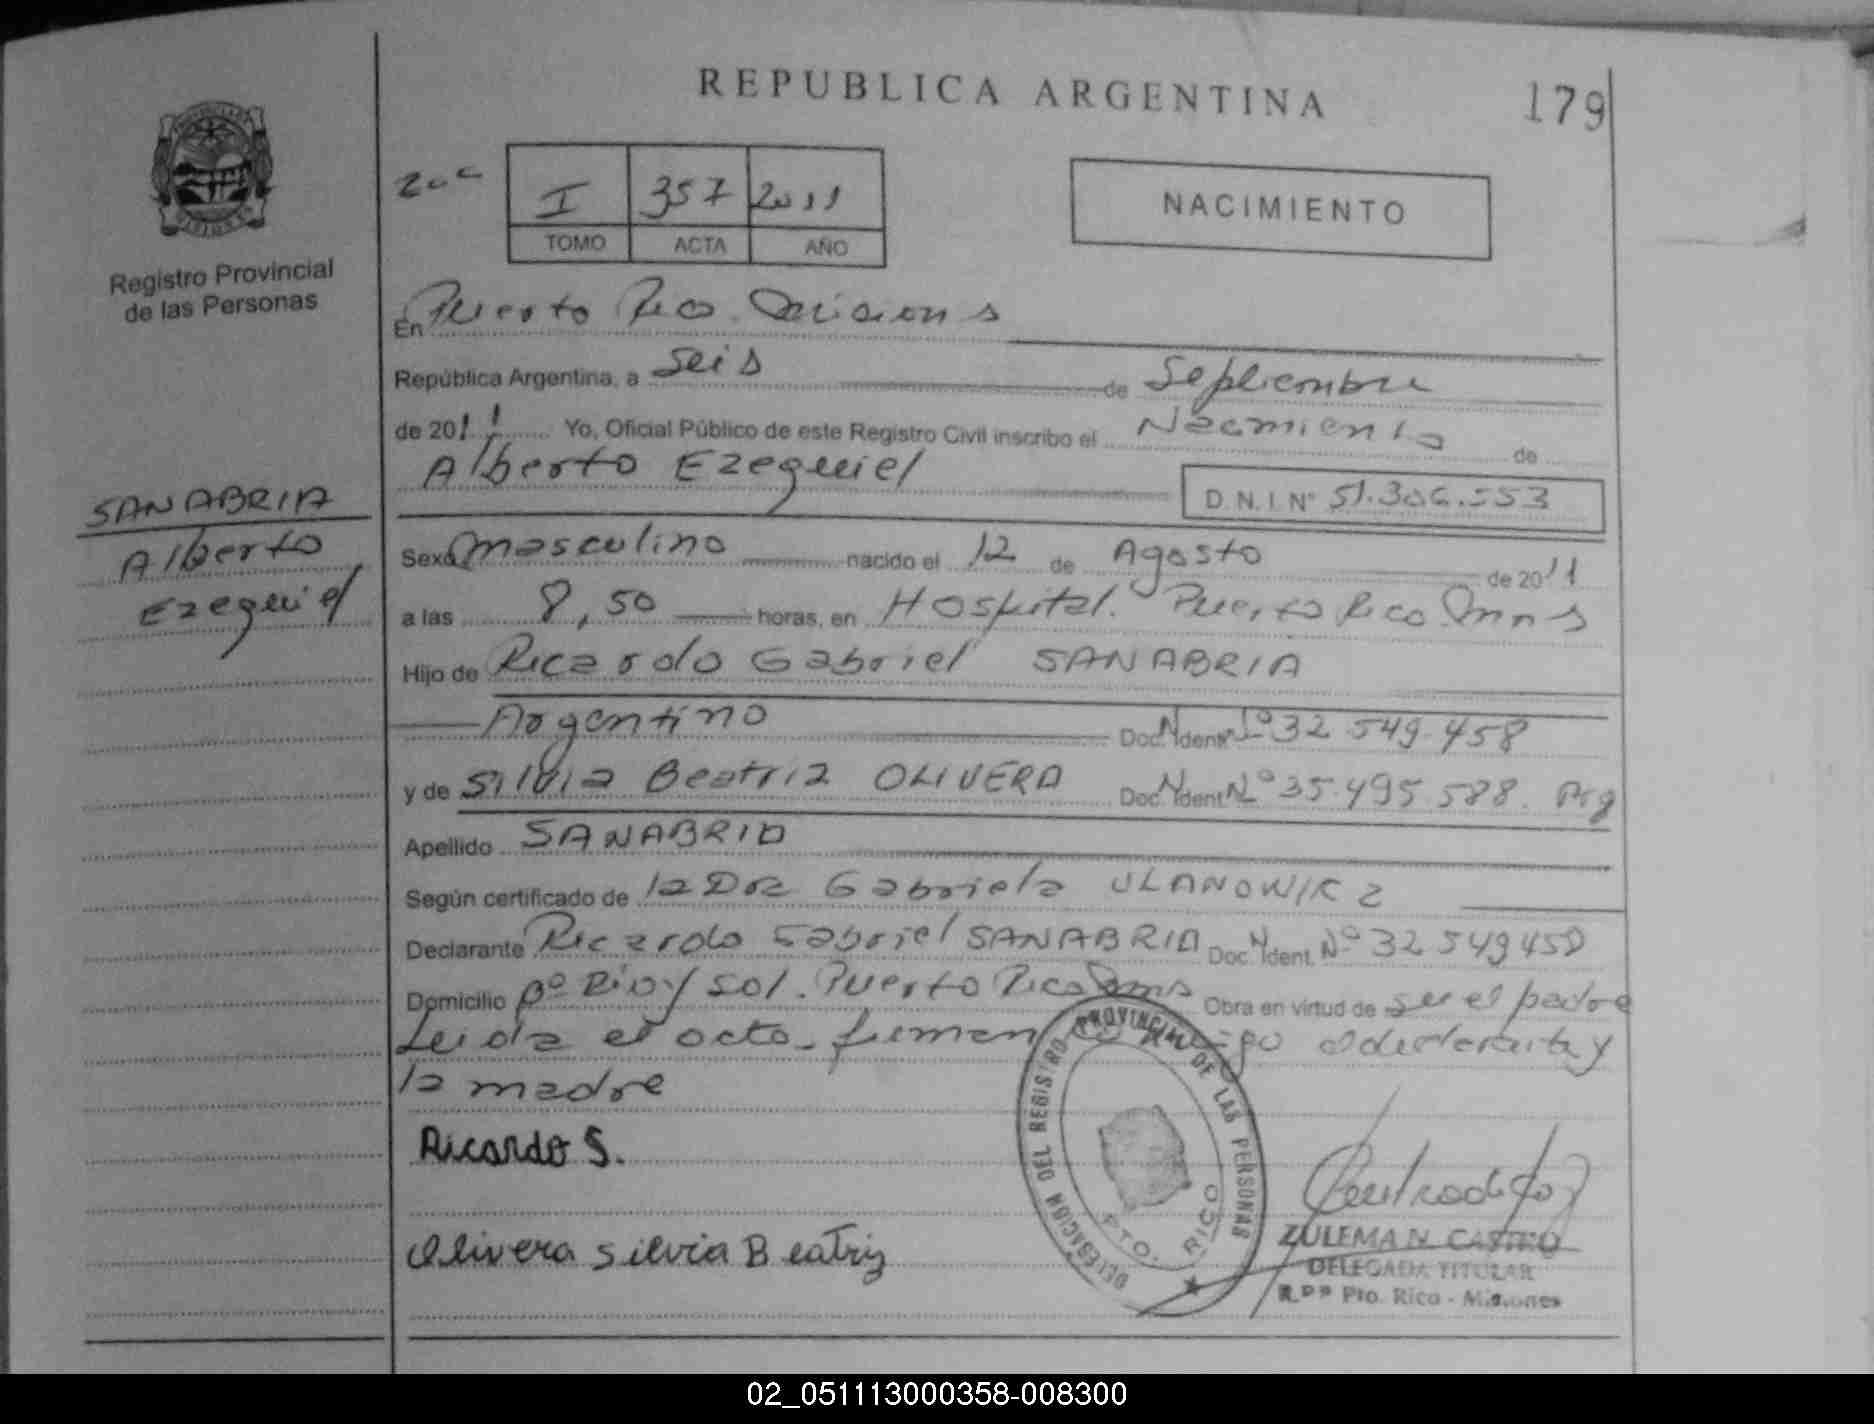 REPUBLICA ARGENTINA
179
I 357 2011
TOMO ACTA AÑO
NACIMIENTO
Registro Provincial
de las Personas
En Puerto Rico Misiones
República Argentina, a Seis de Septiembre
de 2011 Yo, Oficial Público de este Registro Civil inscribo el Nacimiento de
Alberto Ezequiel
D.N.I. Nº 51.306.553
SANABRIA
Alberto
Ezequiel
Sexo masculino nacido el 12 de Agosto de 2011
a las 8,50 horas, en Hospital. Puerto Rico Mnes
Hijo de Ricardo Gabriel SANABRIA
Argentino Doc. Ident. Nº 32 549.458
y de Silvia Beatriz OLIVERA Doc. Ident. Nº 35.495 588. Arg
Apellido SANABRIA
Según certificado de la Dra Gabriela ULANOWIKZ
Declarante Ricardo Gabriel SANABRIA Doc. Ident. Nº 32 549458
Domicilio Bº Rio y Sol. Puerto Rico Mnes Obra en virtud de ser el padre
Leida el acta firman declarante y
la madre
Ricardo S.
Olivera Silvia Beatriz
DELEGACION DEL REGISTRO PROVINCIAL DE LAS PERSONAS
PTO. RICO
ZULEMA N. CASTRO
DELEGADA TITULAR
R.P.P Pto. Rico - Misiones
02_051113000358-008300